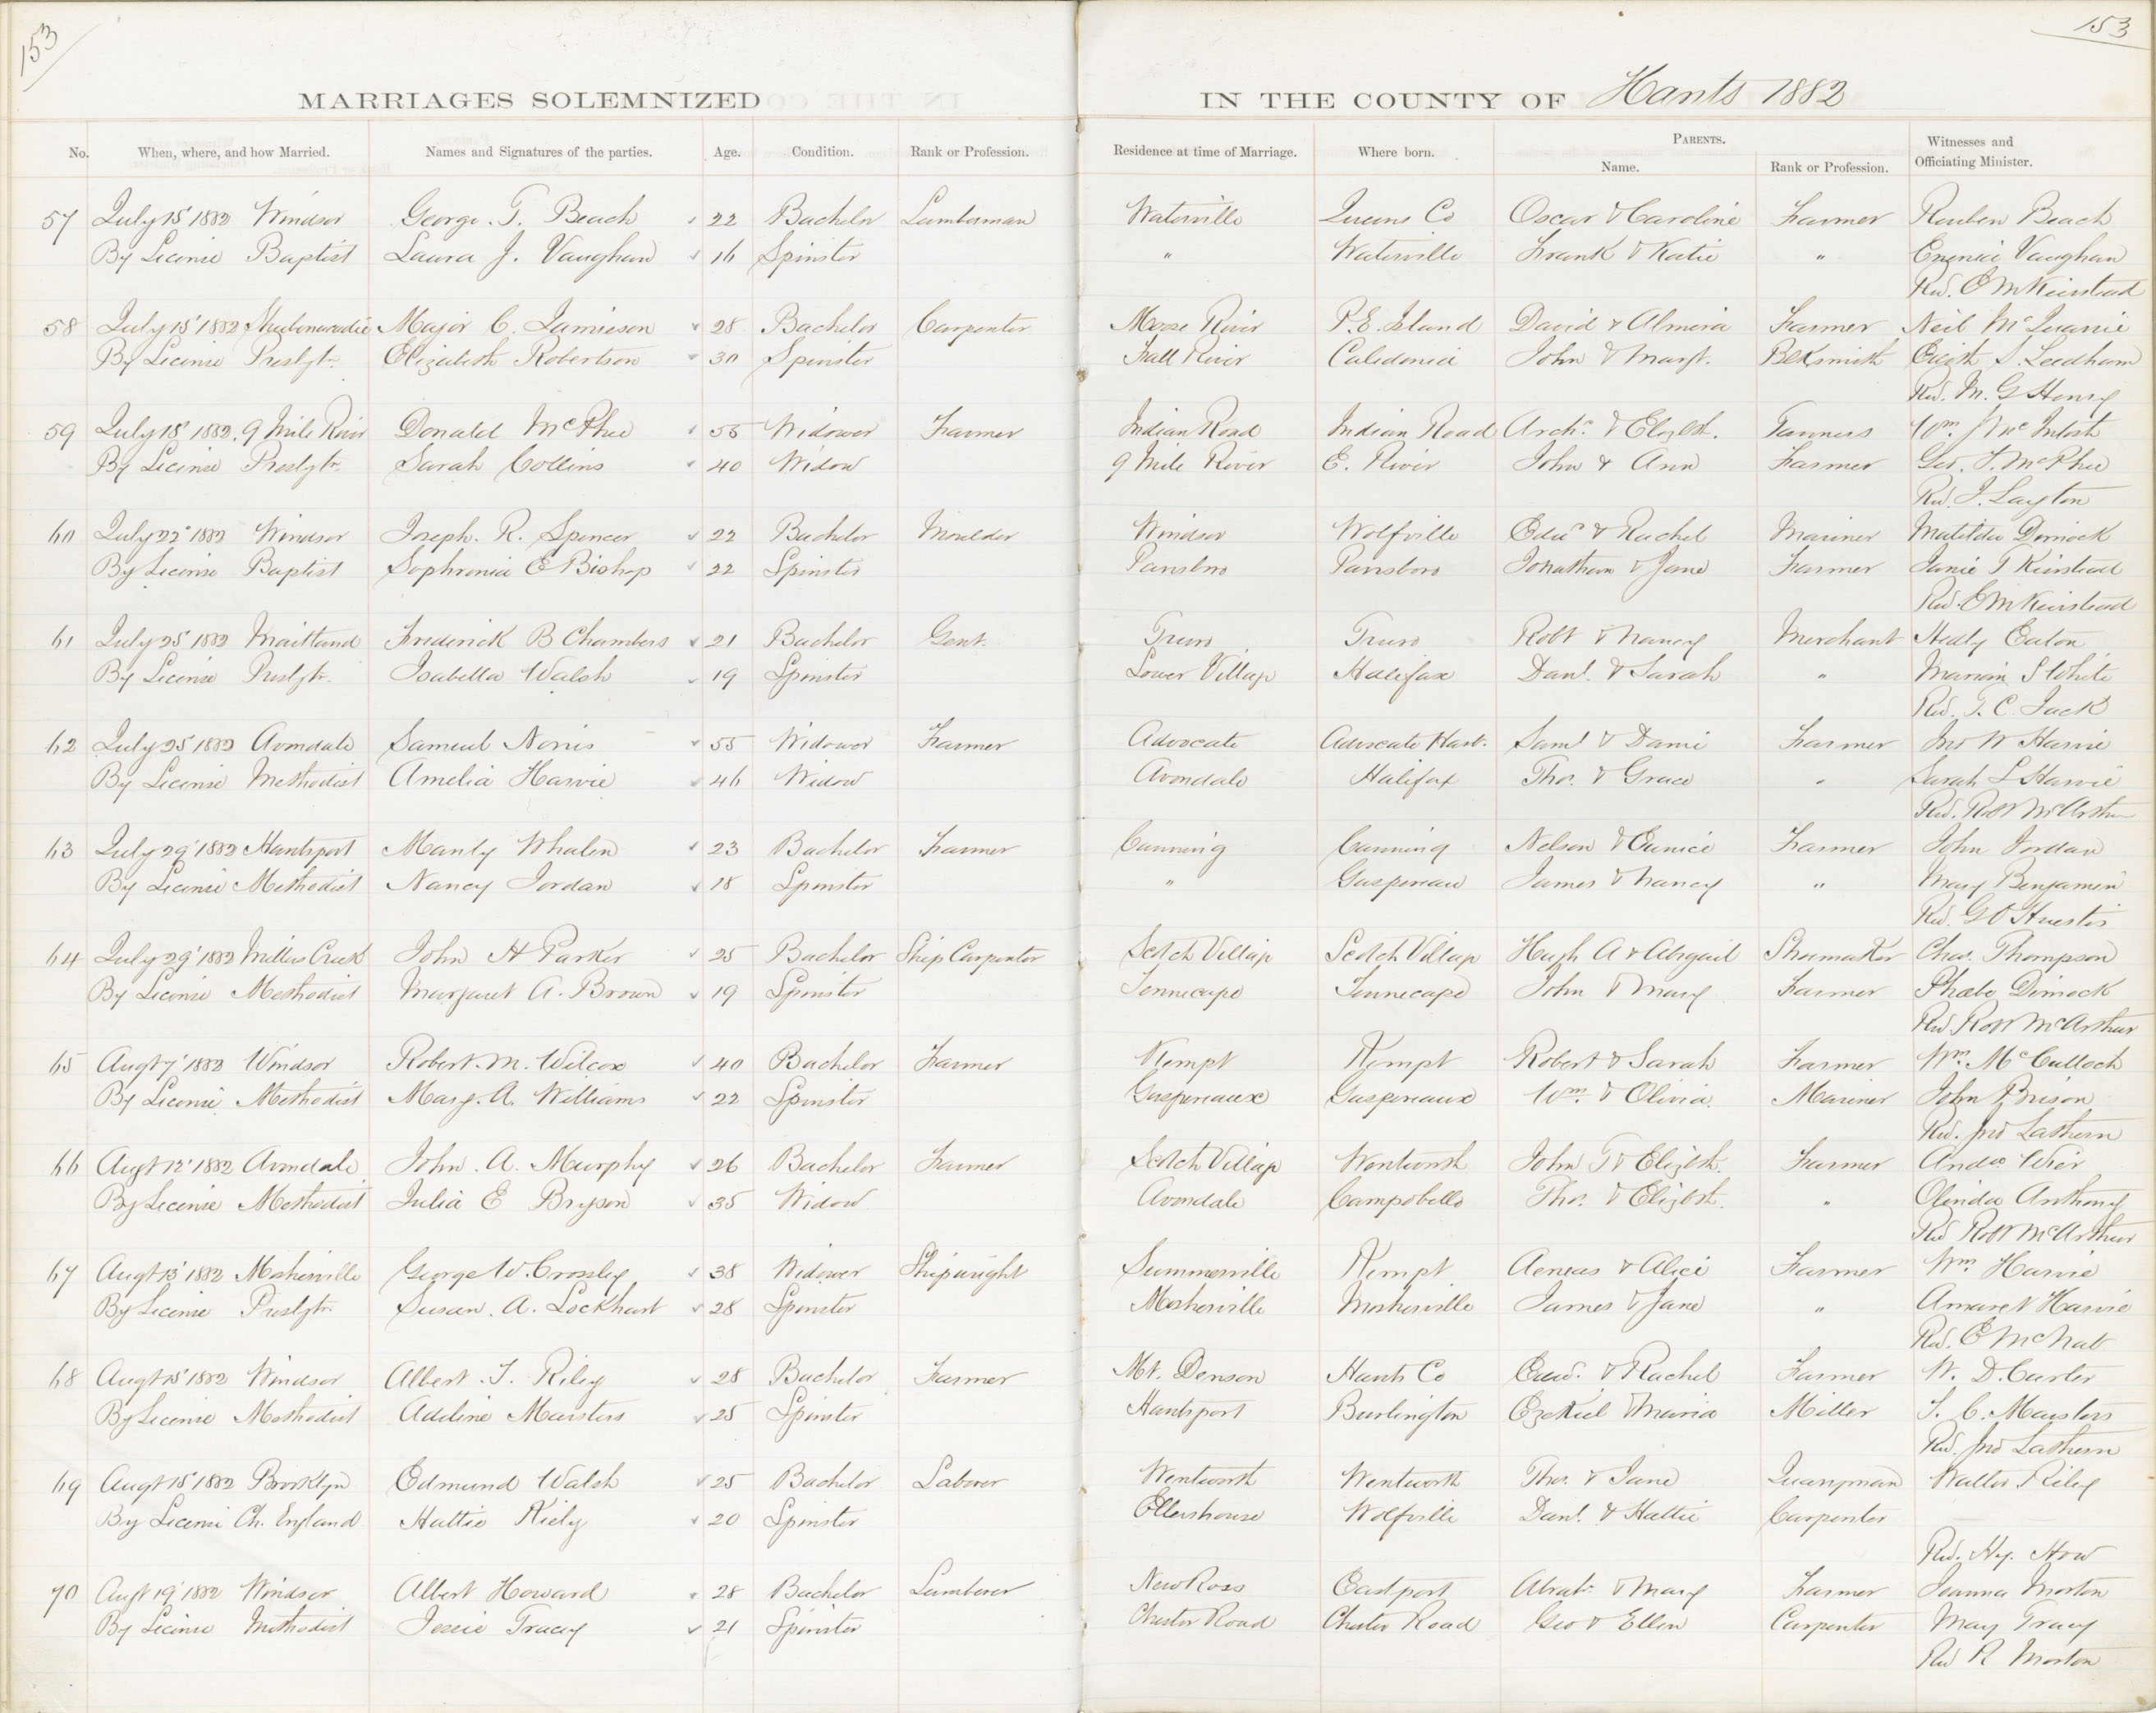 153
153
MARRIAGES SOLEMNIZED IN THE COUNTY OF Hants 1882
No. When, where, and how Married. Names and Signatures of the parties. Age. Condition. Rank or Profession. Residence at time of Marriage. Where born. PARENTS. Name. Rank or Profession. Witnesses and Officiating Minister.
57 July 15' 1882 Windsor George. T. Beach 22 Bachelor Lumberman Waterville Queens Co Oscar & Caroline Farmer Reuben Beach
By License Baptist Laura J. Vaughan 16 Spinster " Waterville Frank & Katie " Vaughan
Rev. E M Keirstead
58 July 15' 1882 Shubenacadie Major C. Jamieson 28 Bachelor Carpenter Moose River P.E. Island David & Almira Farmer Neil McQuarrie
By License Presbytr. Elizabeth Robertson 30 Spinster Fall River Caledonia John & Margt. Blksmith Elizth S. Leedham
Rev. M. G Henry
59 July 18' 1882. 9 Mile River Donald McPhee 55 Widower Farmer Indian Road Indian Road Archd. & Elizbt. Farmers Wm. J McIntosh
By License Presbytr. Sarah Collins 40 Widow 9 Mile River E. River John & Ann Farmer Geo. F. McPhee
Rev. J. Layton
60 July 22' 1882 Windsor Joseph. R. Spencer 22 Bachelor Moulder Windsor Wolfville Edwd & Rachel Mariner Matilda Dimock
By License Baptist Sophronia E Bishop 22 Spinster Parrsboro Parrsboro Jonathan & Jane Farmer Janie T Keirstead
Rev. E M Keirstead
61 July 25' 1882 Maitland Frederick B Chambers 21 Bachelor Gent. Truro Truro Robt & Nancy Merchant Eaton
By License Presbytr. Isabella Walsh 19 Spinster Lower Village Halifax Danl. & Sarah " Marian S White
Rev. T. C. Jack
62 July 25' 1882 Avondale Samuel Norris 55 Widower Farmer Advocate Advocate Harb. Saml & Farmer Jno W Harvie
By License Methodist Amelia Harvie 46 Widow Avondale Halifax Thos. & Grace " Sarah L Harvie
Rev. Robt McArthur
63 July 29' 1882 Hantsport Manly Whalen 23 Bachelor Farmer Canning Canning Nelson & Eunice Farmer John Jordan
By License Methodist Nancy Jordan 18 Spinster " Gaspereau James & Nancy " Mary Benjamin
Rev. G O Huestis
64 July 29' 1882 Millers Creek John H Parker 25 Bachelor Ship Carpenter Scotch Village Scotch Village Hugh A & Abigail Shumaker Chas. Thompson
By License Methodist Margaret A. Brown 19 Spinster Tennecape Tennecape John & Mary Farmer Phœbe Dimock
Rev. Robt McArthur
65 Augt 7' 1882 Windsor Robert. M. Wilcox 40 Bachelor Farmer Kempt Kempt Robert & Sarah Farmer Wm. McCulloch
By License Methodist Mary. A. Williams 22 Spinster Gaspereaux Gaspereaux Wm. & Olivia Mariner John Brison
Rev. Jno Lathern
66 Augt 12' 1882 Avondale John. A. Murphy 26 Bachelor Farmer Scotch Village Wentworth John T & Elizbt. Farmer Andw Wier
By License Methodist Julia E Bryson 35 Widow Avondale Campobello Thos. & Elizbt. " Olinda Anthony
Rev Robt McArthur
67 Augt 13' 1882 Mosherville George W. Crossley 38 Widower Shipwright Summerville Kempt Aeneas & Alice Farmer Wm Harvie
By License Presbytr. Susan. A. Lockhart 28 Spinster Mosherville Mosherville James & Jane " Amaret Harvie
Rev. E McNab
68 Augt 15' 1882 Windsor Albert. T. Riley 28 Bachelor Farmer Mt. Denson Hants Co Edwd. & Rachel Farmer W. D. Carter
By License Methodist Adeline Marsters 25 Spinster Hantsport Burlington Ezekiel & Maria Miller J. C. Marsters
Rev. Jno Lathern
69 Augt 15' 1882 Brooklyn Edmund Walsh 25 Bachelor Laborer Wentworth Wentworth Thos. & Jane Quarryman Walter Riley
By License Ch. England Hattie Kiely 20 Spinster Ellershouse Wolfville Danl. & Hattie Carpenter
Rev. Hy. How
70 Augt 19' 1882 Windsor Albert Howard 28 Bachelor Lumberer New Ross Eastport Abrah. & Mary Farmer Joanna Morton
By License Methodist Jessie Tracey 21 Spinster Chester Road Chester Road Geo & Ellen Carpenter May Tracy
Rev R Morton